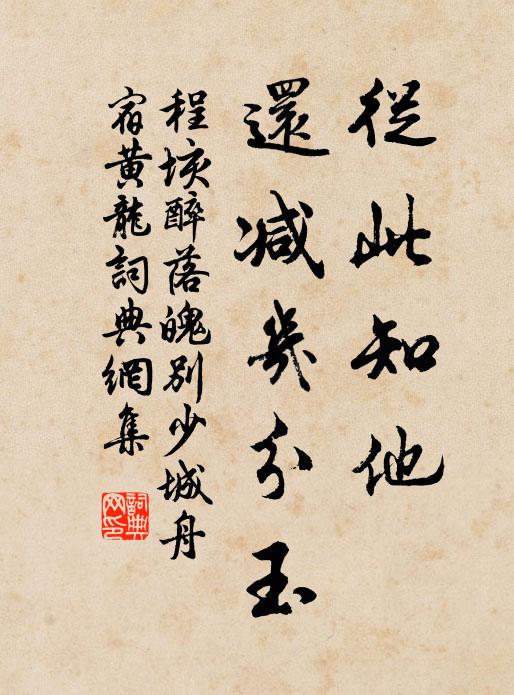 從此知他
還减幾分玉
程垓醉落魄別少城舟
宿黃龍詞典網集
詞典
网印